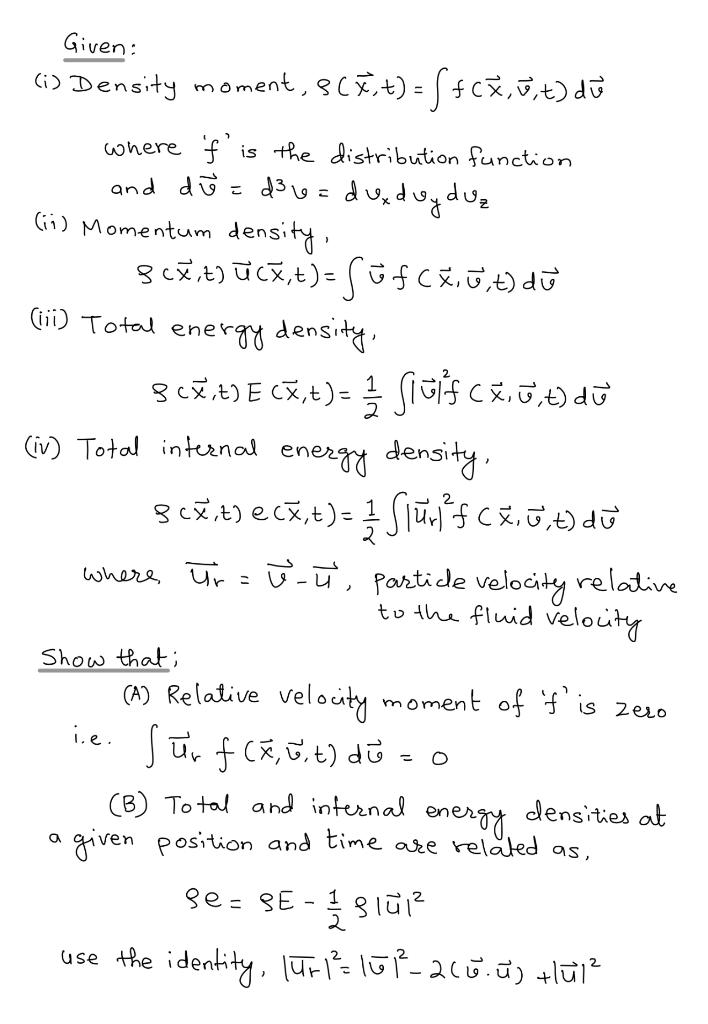 Given:
(i) Density moment, ρ(x⃗,t) = ∫ f(x⃗,v⃗,t) dv⃗
where 'f' is the distribution function
and dv⃗ = d³v = dvₓ dv_y dv_z
(ii) Momentum density,
ρ(x⃗,t) u⃗(x⃗,t) = ∫ v⃗ f(x⃗,v⃗,t) dv⃗
(iii) Total energy density,
ρ(x⃗,t) E(x⃗,t) = 1/2 ∫|v⃗|² f(x⃗,v⃗,t) dv⃗
(iv) Total internal energy density,
ρ(x⃗,t) e(x⃗,t) = 1/2 ∫|u⃗ᵣ|² f(x⃗,v⃗,t) dv⃗
where, u⃗ᵣ = v⃗ - u⃗, particle velocity relative
to the fluid velocity
Show that;
(A) Relative velocity moment of 'f' is zero
i.e. ∫ u⃗ᵣ f(x⃗,v⃗,t) dv⃗ = 0
(B) Total and internal energy densities at
a given position and time are related as,
ρe = ρE - 1/2 ρ|u⃗|²
use the identity, |u⃗ᵣ|² = |v⃗|² - 2(v⃗.u⃗) + |u⃗|²